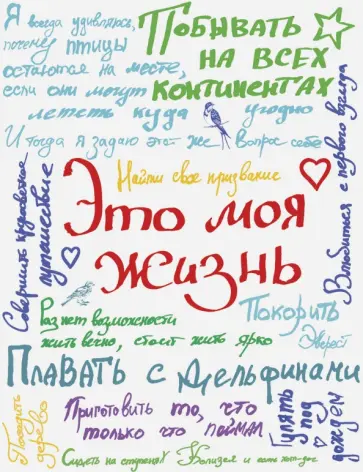 Я всегда удивляюсь,
почему птицы
остаются на месте,
если они могут
лететь куда угодно
И тогда я задаю этот же вопрос себе
Побывать
на всех
континентах
Найти свое призвание
Это моя
жизнь
Совершить кругосветное
путешествие
Влюбиться с первого взгляда
Раз нет возможности
жить вечно, стоит жить ярко
Покорить
Эверест
Плавать с дельфинами
Посадить
дерево
Приготовить то, что
только что поймал
Гулять
под
дождем
Сидеть на ступенях